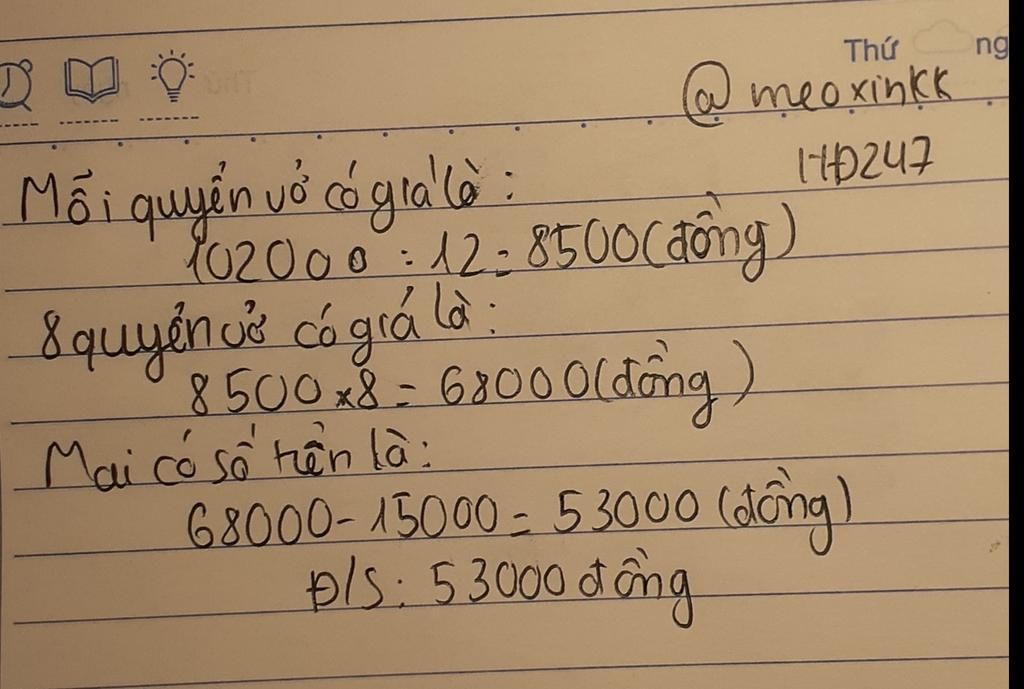 Thứ ng
@meoxinkk
HĐ247
Mỗi quyển vở có giá là:
102000 : 12 = 8500 (đồng)
8 quyển vở có giá là:
8500 x 8 = 68000 (đồng)
Mai có số tiền là:
68000 - 15000 = 53000 (đồng)
Đ/S: 53000 đồng